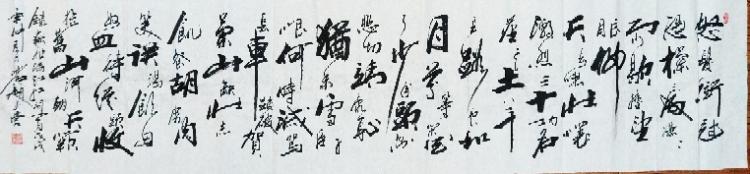 怒髮衝冠
憑欄處瀟瀟
雨歇抬望
眼仰
天長嘯壯懷
激烈三十功名
塵與土八千
里路雲和
月莫等閒白
了少年頭空
悲切靖康恥
猶未雪臣子
恨何時滅駕
長車踏破賀
蘭山缺壯志
飢餐胡虜肉
笑談渴飲匈
奴血待從頭收
拾舊山河朝天闕
錄岳飛滿江紅詞